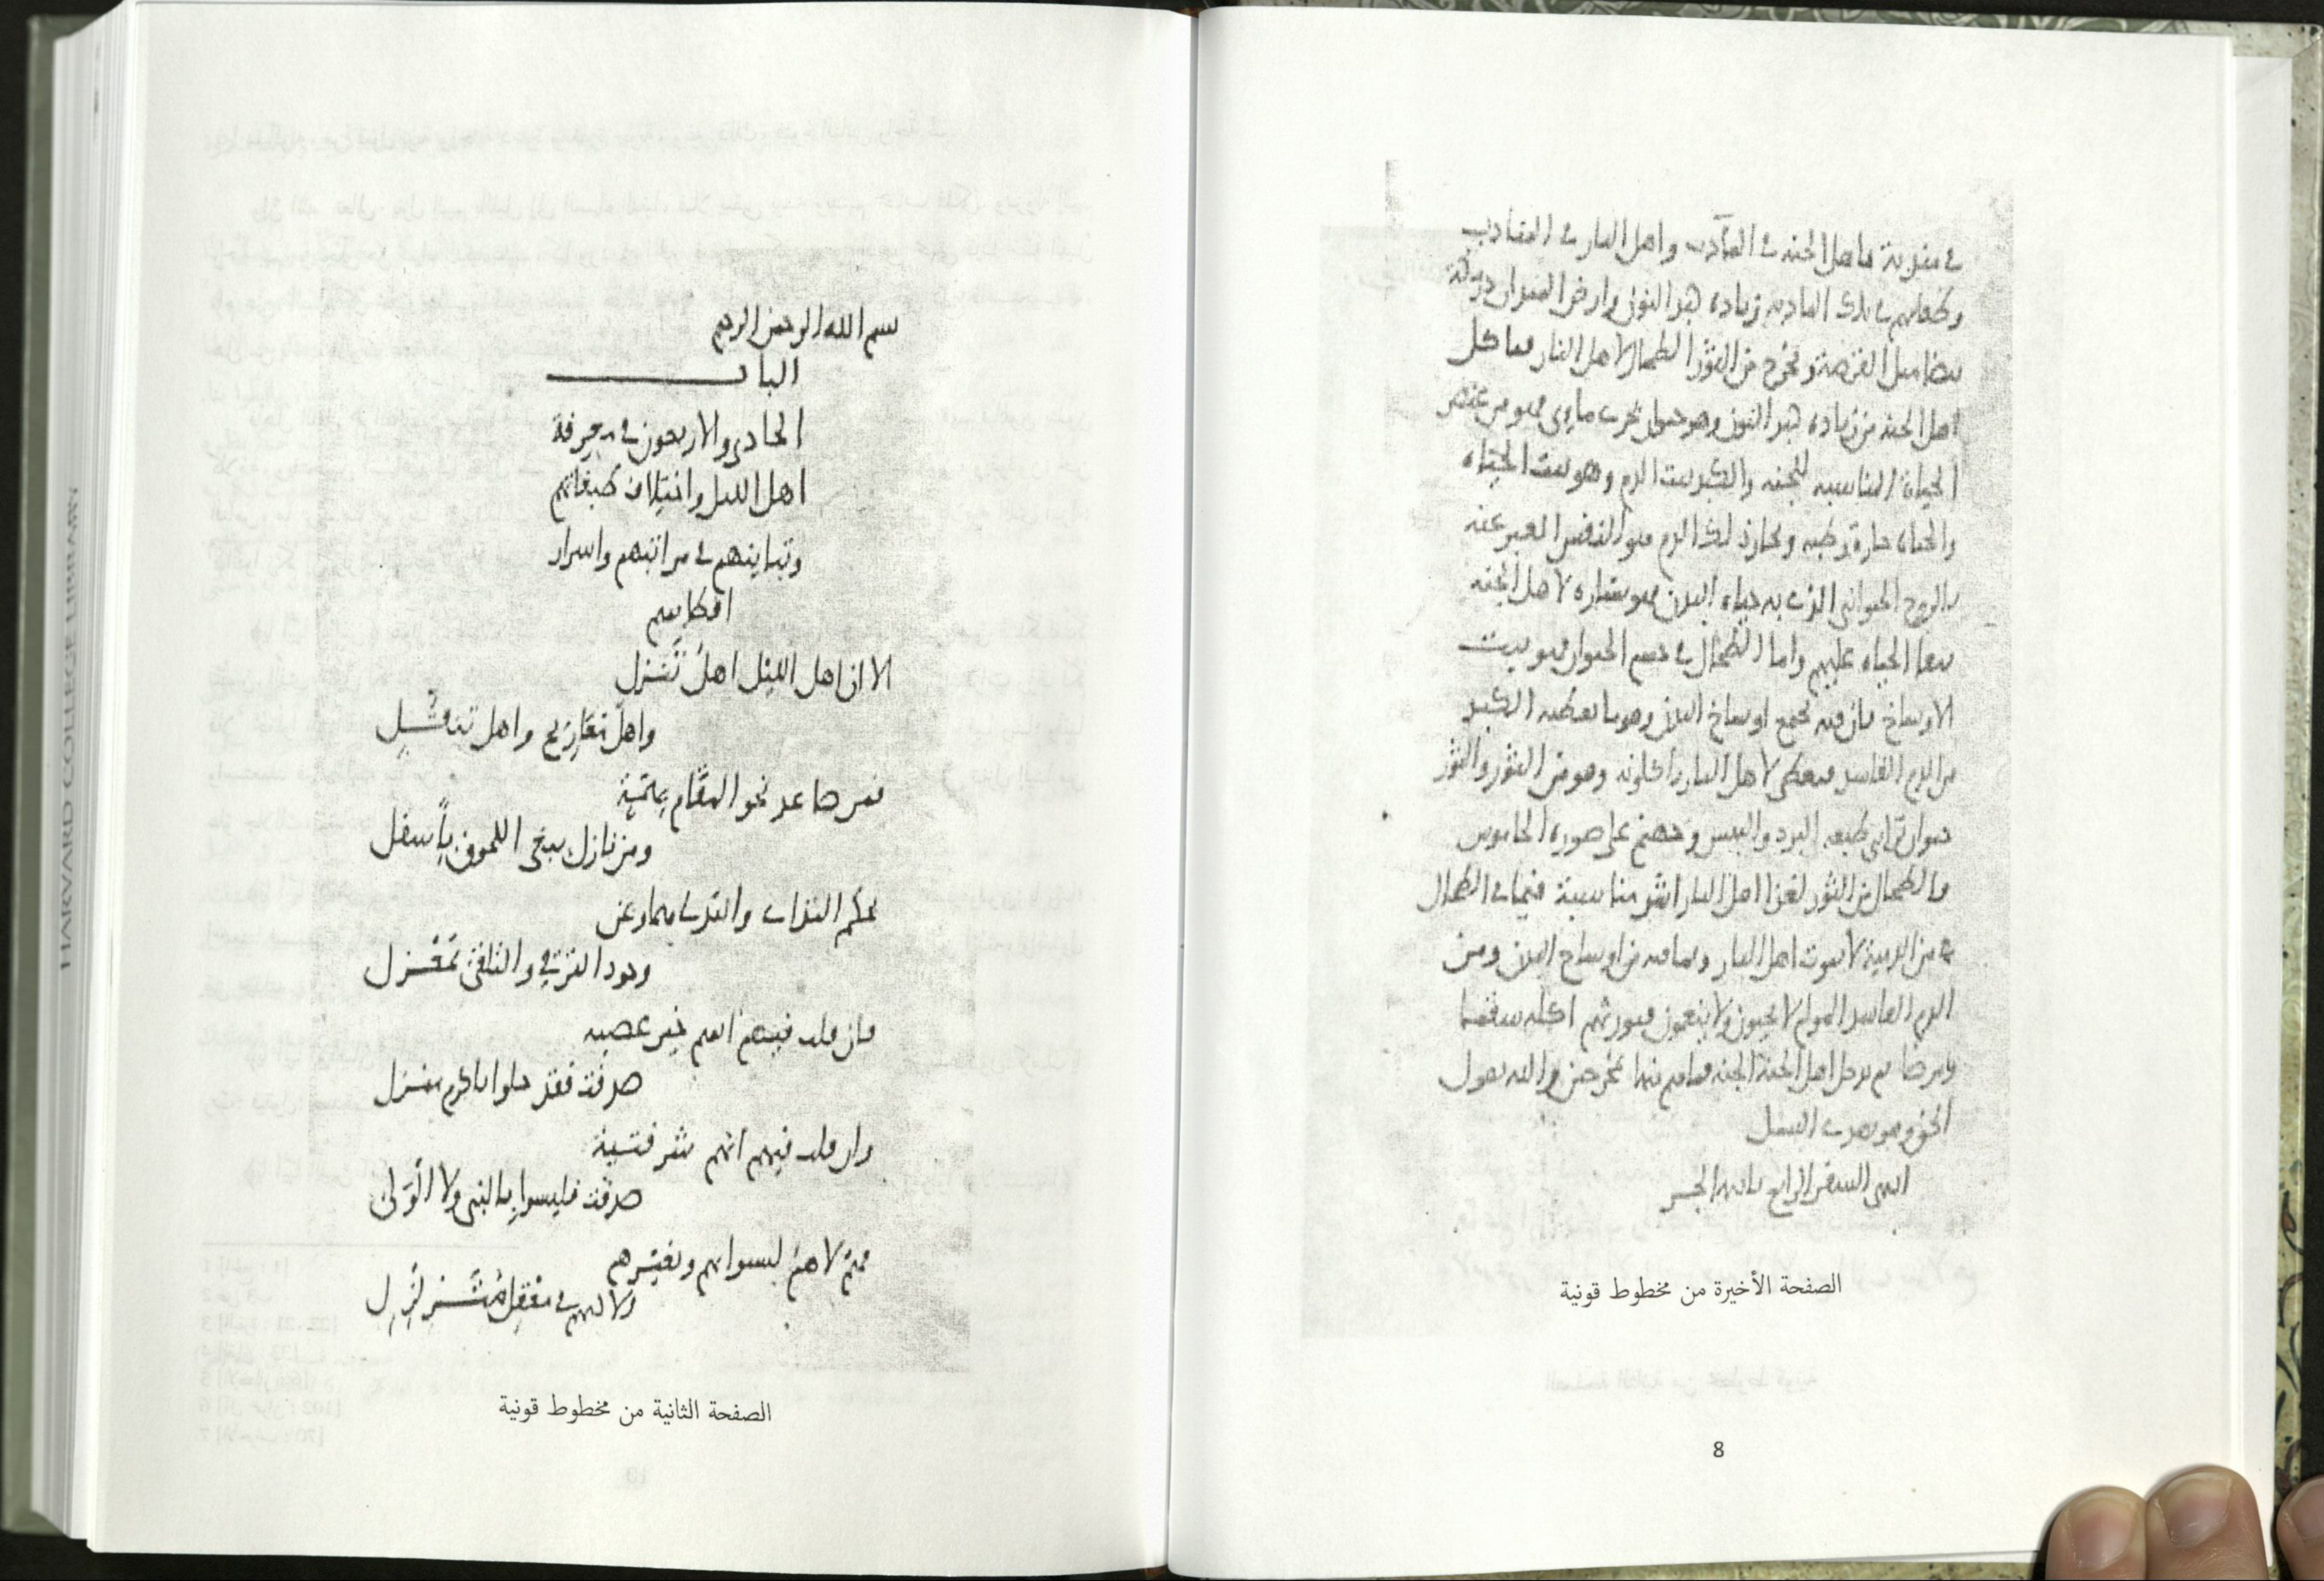 في مندبة فاهل الجنة في المآدب واهل النار في المنادب
وطعامهم في تلك المادبه زياده كبد النون وارض الميدان درمكة
بيضا مثل القرصة ويخرج من الثور الطحال لاهل النار فياكل
اهل الجنه من زياده كبد النون وهو حيوان بحري مايي فهو من عنصر
الحياة المناسبه للجنه والكبد بيت الدم وهو بيت الحياه
والحياه حارة رطبه وبخار ذلك الدم هو النفس المعبر عنه
بالروح الحيواني الذي به حياه البدن فهو بشاره لاهل الجنه
ببقا الحياه عليهم واما الطحال في جسم الحيوان فهو بيت
الاوساخ فان فيه تجمع اوساخ البدن وهو ما يعطيه الكبد
من الدم الفاسد فيعطى لاهل النار ياكلونه وهو من الثور والثور
حيوان ترابي طبعه البرد واليبس وجهنم على صوره الجاموس
فالطحال من الثور لغذا اهل النار اشد مناسبة فبما في الطحال
من الدمية لا يموت اهل النار وبما فيه من اوساخ البدن ومن
الدم الفاسد المولم لا يحيون ولا ينعمون فيورثهم اكله سقما
ومرضا ثم يدخل اهل الجنة الجنه فما هم منها بمخرجين والله يقول
الحق وهو يهدي السبيل
انتهى السفر الرابع بانتها الجز
الصفحة الأخيرة من مخطوط قونية
8
بسم الله الرحمن الرحيم
الباب
الحادي والاربعون في معرفة
اهل الليل واختلاف طبقاتهم
وتباينهم في مراتبهم واسرار
اقطابهم
الا ان اهل الليل اهل تنزل
واهل معاريج واهل تنقل
فمن صاعد نحو المقام بهمة
ومن نازل يبغي اللحوق باسفل
بحكم التداني والتدلي هما وعن
وجود الترقي والتلقي بمعزل
فان قلت فيهم انهم خير عصبه
صدقت فقد حلوا باكرم منزل
وان قلت فيهم انهم شر فتية
صدقت فليسوا بالنبي ولا الولي
فهم لا هم ليسوا بهم وبغيرهم
ولا لهم في معقل متنزل
الصفحة الثانية من مخطوط قونية
HARVARD COLLEGE LIBRARY